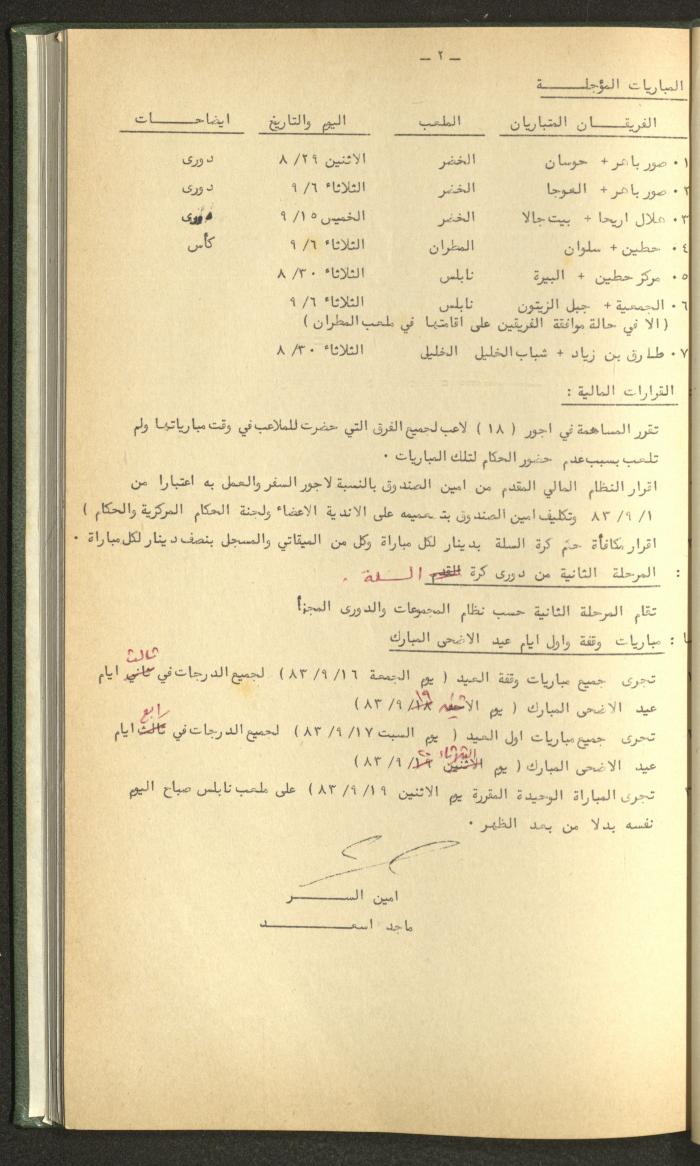 — ٢ —
المباريات المؤجلة
الفريقان المتباريان الملعب اليوم والتاريخ ايضاحات
١٠ صور باهر + حوسان الخضر الاثنين ٨/٢٩ دورى
٢٠ صور باهر + العوجا الخضر الثلاثاء ٩/٦ دورى
٣٠ هلال اريحا + بيت جالا الخضر الخميس ٩/١٥ دورى
٤٠ حطين + سلوان المطران الثلاثاء ٩/٦ كأس
٥٠ مركز حطين + البيرة نابلس الثلاثاء ٨/٣٠
٦٠ الجمعية + جبل الزيتون نابلس الثلاثاء ٩/٦
( الا في حالة موافقة الفريقين على اقامتها في ملعب المطران )
٧٠ طارق بن زياد + شباب الخليل الخليل الثلاثاء ٨/٣٠
القرارات المالية :
تقرر المساهمة في اجور ( ١٨ ) لاعب لجميع الفرق التي حضرت للملاعب في وقت مبارياتها ولم
تلعب بسبب عدم حضور الحكام لتلك المباريات ٠
اقرار النظام المالي المقدم من امين الصندوق بالنسبة لاجور السفر والعمل به اعتبارا من
٨٣/٩/١ وتكليف امين الصندوق بتعميمه على الاندية الاعضاء ولجنة الحكام المركزية والحكام )
اقرار مكافأة حكم كرة السلة بدينار لكل مباراة وكل من الميقاتي والمسجل بنصف دينار لكل مباراة ٠
: المرحلة الثانية من دورى كرة القدم السلة .
تقام المرحلة الثانية حسب نظام المجموعات والدورى المجزأ
: مباريات وقفة واول ايام عيد الاضحى المبارك
تجرى جميع مباريات وقفة العيد ( يوم الجمعة ٨٣/٩/١٦ ) لجميع الدرجات في ثاني ثالث ايام
عيد الاضحى المبارك ( يوم ٨٣/٩/١٨ ١٩ )
تجرى جميع مباريات اول العيد ( يوم السبت ٨٣/٩/١٧ ) لجميع الدرجات في ثالث رابع ايام
عيد الاضحى المبارك ( يوم الاثنين الثلاثاء ٨٣/٩/١٩ ٢٠ )
٣ تجرى المباراة الوحيدة المقررة يوم الاثنين ٨٣/٩/١٩ ) على ملعب نابلس صباح اليوم
نفسه بدلا من بعد الظهر ٠
امين السر
ماجد اسعد